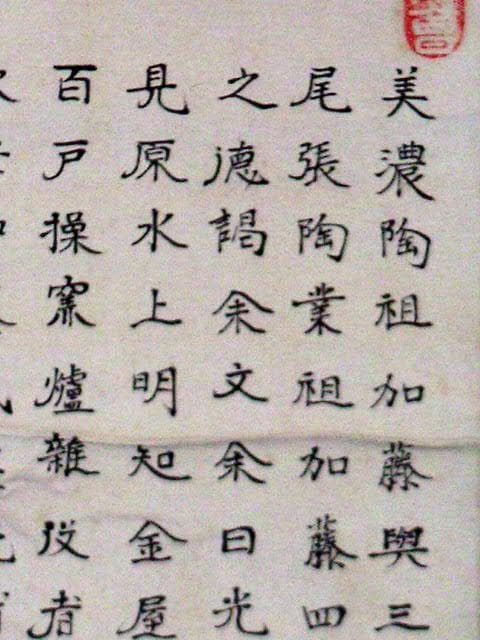 美濃陶祖加藤與三
尾張陶業祖加藤四
之德謁余文余曰光
見原水上明知金屋
百戸操窯爐雜役者